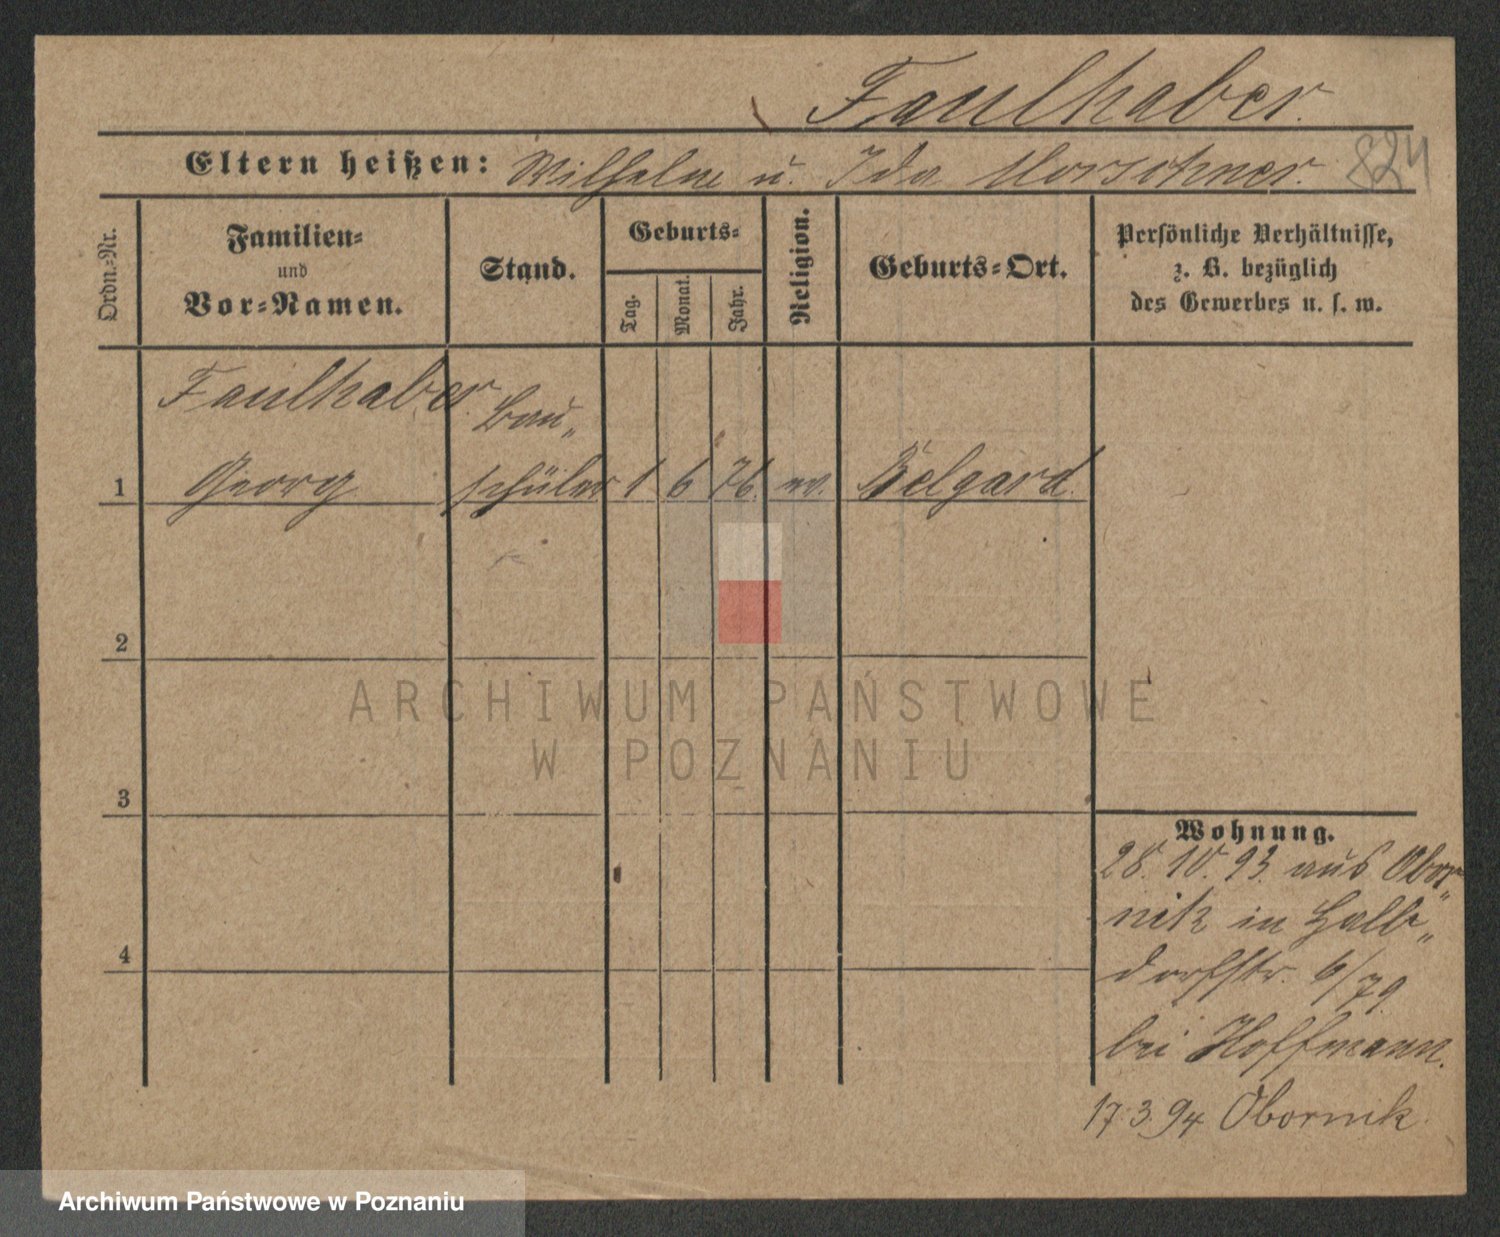 Faulhaber.
Eltern heißen: Wilhelm u. Ida Horschner. 824
Ordn.-Nr.
Familien-
und
Vor-Namen.
Stand.
Geburts-
Tag.
Monat.
Jahr.
Religion.
Geburts-Ort.
Persönliche Verhältnisse,
z. B. bezüglich
des Gewerbes u. s. w.
Faulhaber Bau„
1 Georg schüler 1 6 76. ev. Belgard.
2
3
4
Wohnung.
28. 10. 93. aus Obor„
nik in Halb„
dorfstr. 6/79
bei Hoffmann.
17.3.94 Obornik
ARCHIWUM PAŃSTWOWE
W POZNANIU
Archiwum Państwowe w Poznaniu